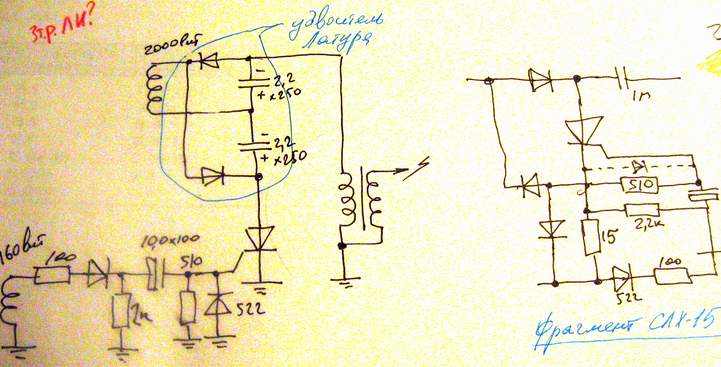 Зт.р. ЛИ?
удвоитель
Латура
2000вит
2,2
×250
2,2
×250
160вит
100
10,0×100
510
2к
522
1м
510
2,2к
15
522
100
Фрагмент СЛХ-15